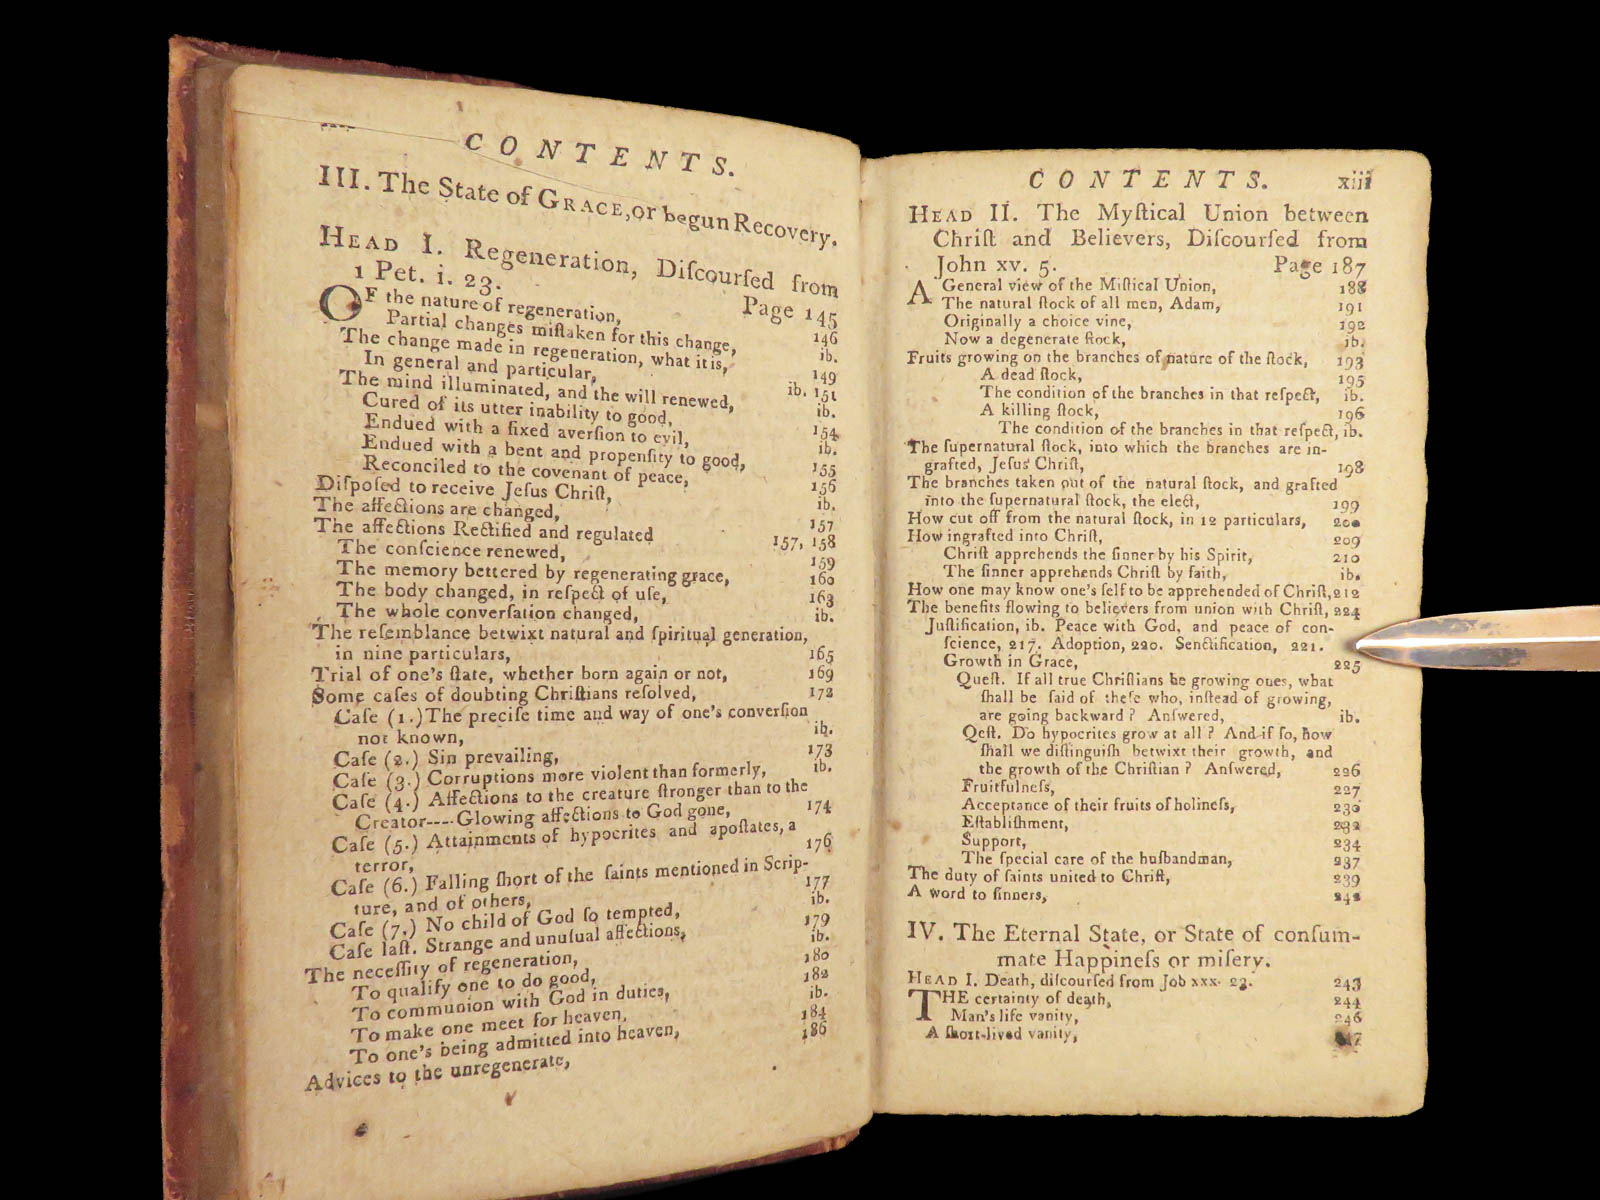 CONTENTS.
III. The State of GRACE, or begun Recovery.
HEAD I. Regeneration, Diſcourſed from
1 Pet. i. 23. Page 145
OF the nature of regeneration, 146
Partial changes miſtaken for this change, ib.
The change made in regeneration, what it is, 149
In general and particular, ib. 151
The mind illuminated, and the will renewed, ib.
Cured of its utter inability to good, 154
Endued with a fixed averſion to evil, ib.
Endued with a bent and propenſity to good, 155
Reconciled to the covenant of peace, 156
Diſpoſed to receive Jeſus Chriſt, ib.
The affections are changed, 157
The affections Rectified and regulated 157, 158
The conſcience renewed, 159
The memory bettered by regenerating grace, 160
The body changed, in reſpect of uſe, 163
The whole converſation changed, ib.
The reſemblance betwixt natural and ſpiritual generation,
in nine particulars, 165
Trial of one's ſtate, whether born again or not, 169
Some caſes of doubting Chriſtians reſolved, 172
Caſe (1.) The preciſe time and way of one's converſion
not known, ib.
Caſe (2.) Sin prevailing, 173
Caſe (3.) Corruptions more violent than formerly, ib.
Caſe (4.) Affections to the creature ſtronger than to the
Creator----Glowing affections to God gone, 174
Caſe (5.) Attainments of hypocrites and apoſtates, a
terror, 176
Caſe (6.) Falling ſhort of the ſaints mentioned in Scrip-
ture, and of others, 177
Caſe (7.) No child of God ſo tempted, ib.
Caſe laſt. Strange and unuſual affections, 179
The neceſſity of regeneration, ib.
To qualify one to do good, 180
To communion with God in duties, 182
To make one meet for heaven, ib.
To one's being admitted into heaven, 184
Advices to the unregenerate, 186
CONTENTS. xiii
HEAD II. The Myſtical Union between
Chriſt and Believers, Diſcourſed from
John xv. 5. Page 187
A General view of the Miſtical Union, 188
The natural ſtock of all men, Adam, 191
Originally a choice vine, 192
Now a degenerate ſtock, ib.
Fruits growing on the branches of nature of the ſtock, 193
A dead ſtock, 195
The condition of the branches in that reſpect, ib.
A killing ſtock, 196
The condition of the branches in that reſpect, ib.
The ſupernatural ſtock, into which the branches are in-
grafted, Jeſus Chriſt, 198
The branches taken out of the natural ſtock, and grafted
into the ſupernatural ſtock, the elect, 199
How cut off from the natural ſtock, in 12 particulars, 200
How ingrafted into Chriſt, 209
Chriſt apprehends the ſinner by his Spirit, 210
The ſinner apprehends Chriſt by faith, ib.
How one may know one's ſelf to be apprehended of Chriſt, 212
The benefits flowing to believers from union with Chriſt, 224
Juſtification, ib. Peace with God, and peace of con-
ſcience, 217. Adoption, 220. Senctification, 221.
Growth in Grace, 225
Queſt. If all true Chriſtians be growing ones, what
ſhall be ſaid of theſe who, inſtead of growing,
are going backward? Anſwered, ib.
Qeſt. Do hypocrites grow at all? And if ſo, how
ſhall we diſtinguiſh betwixt their growth, and
the growth of the Chriſtian? Anſwered, 226
Fruitfulneſs, 227
Acceptance of their fruits of holineſs, 230
Eſtabliſhment, 232
Support, 234
The ſpecial care of the huſbandman, 237
The duty of ſaints united to Chriſt, 239
A word to ſinners, 242
IV. The Eternal State, or State of conſum-
mate Happineſs or miſery.
HEAD I. Death, diſcourſed from Job xxx. 23. 243
THE certainty of death, 244
Man's life vanity, 246
A ſhort-lived vanity,